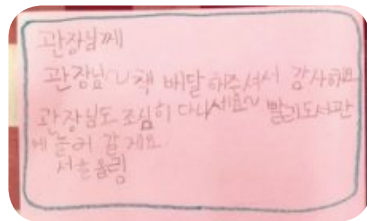 관장님께
관장님~ 책 배달 해주셔서 감사해요
관장님도 조심히 다니세요~ 빨리도서관
에 놀러 갈게요
서을올림